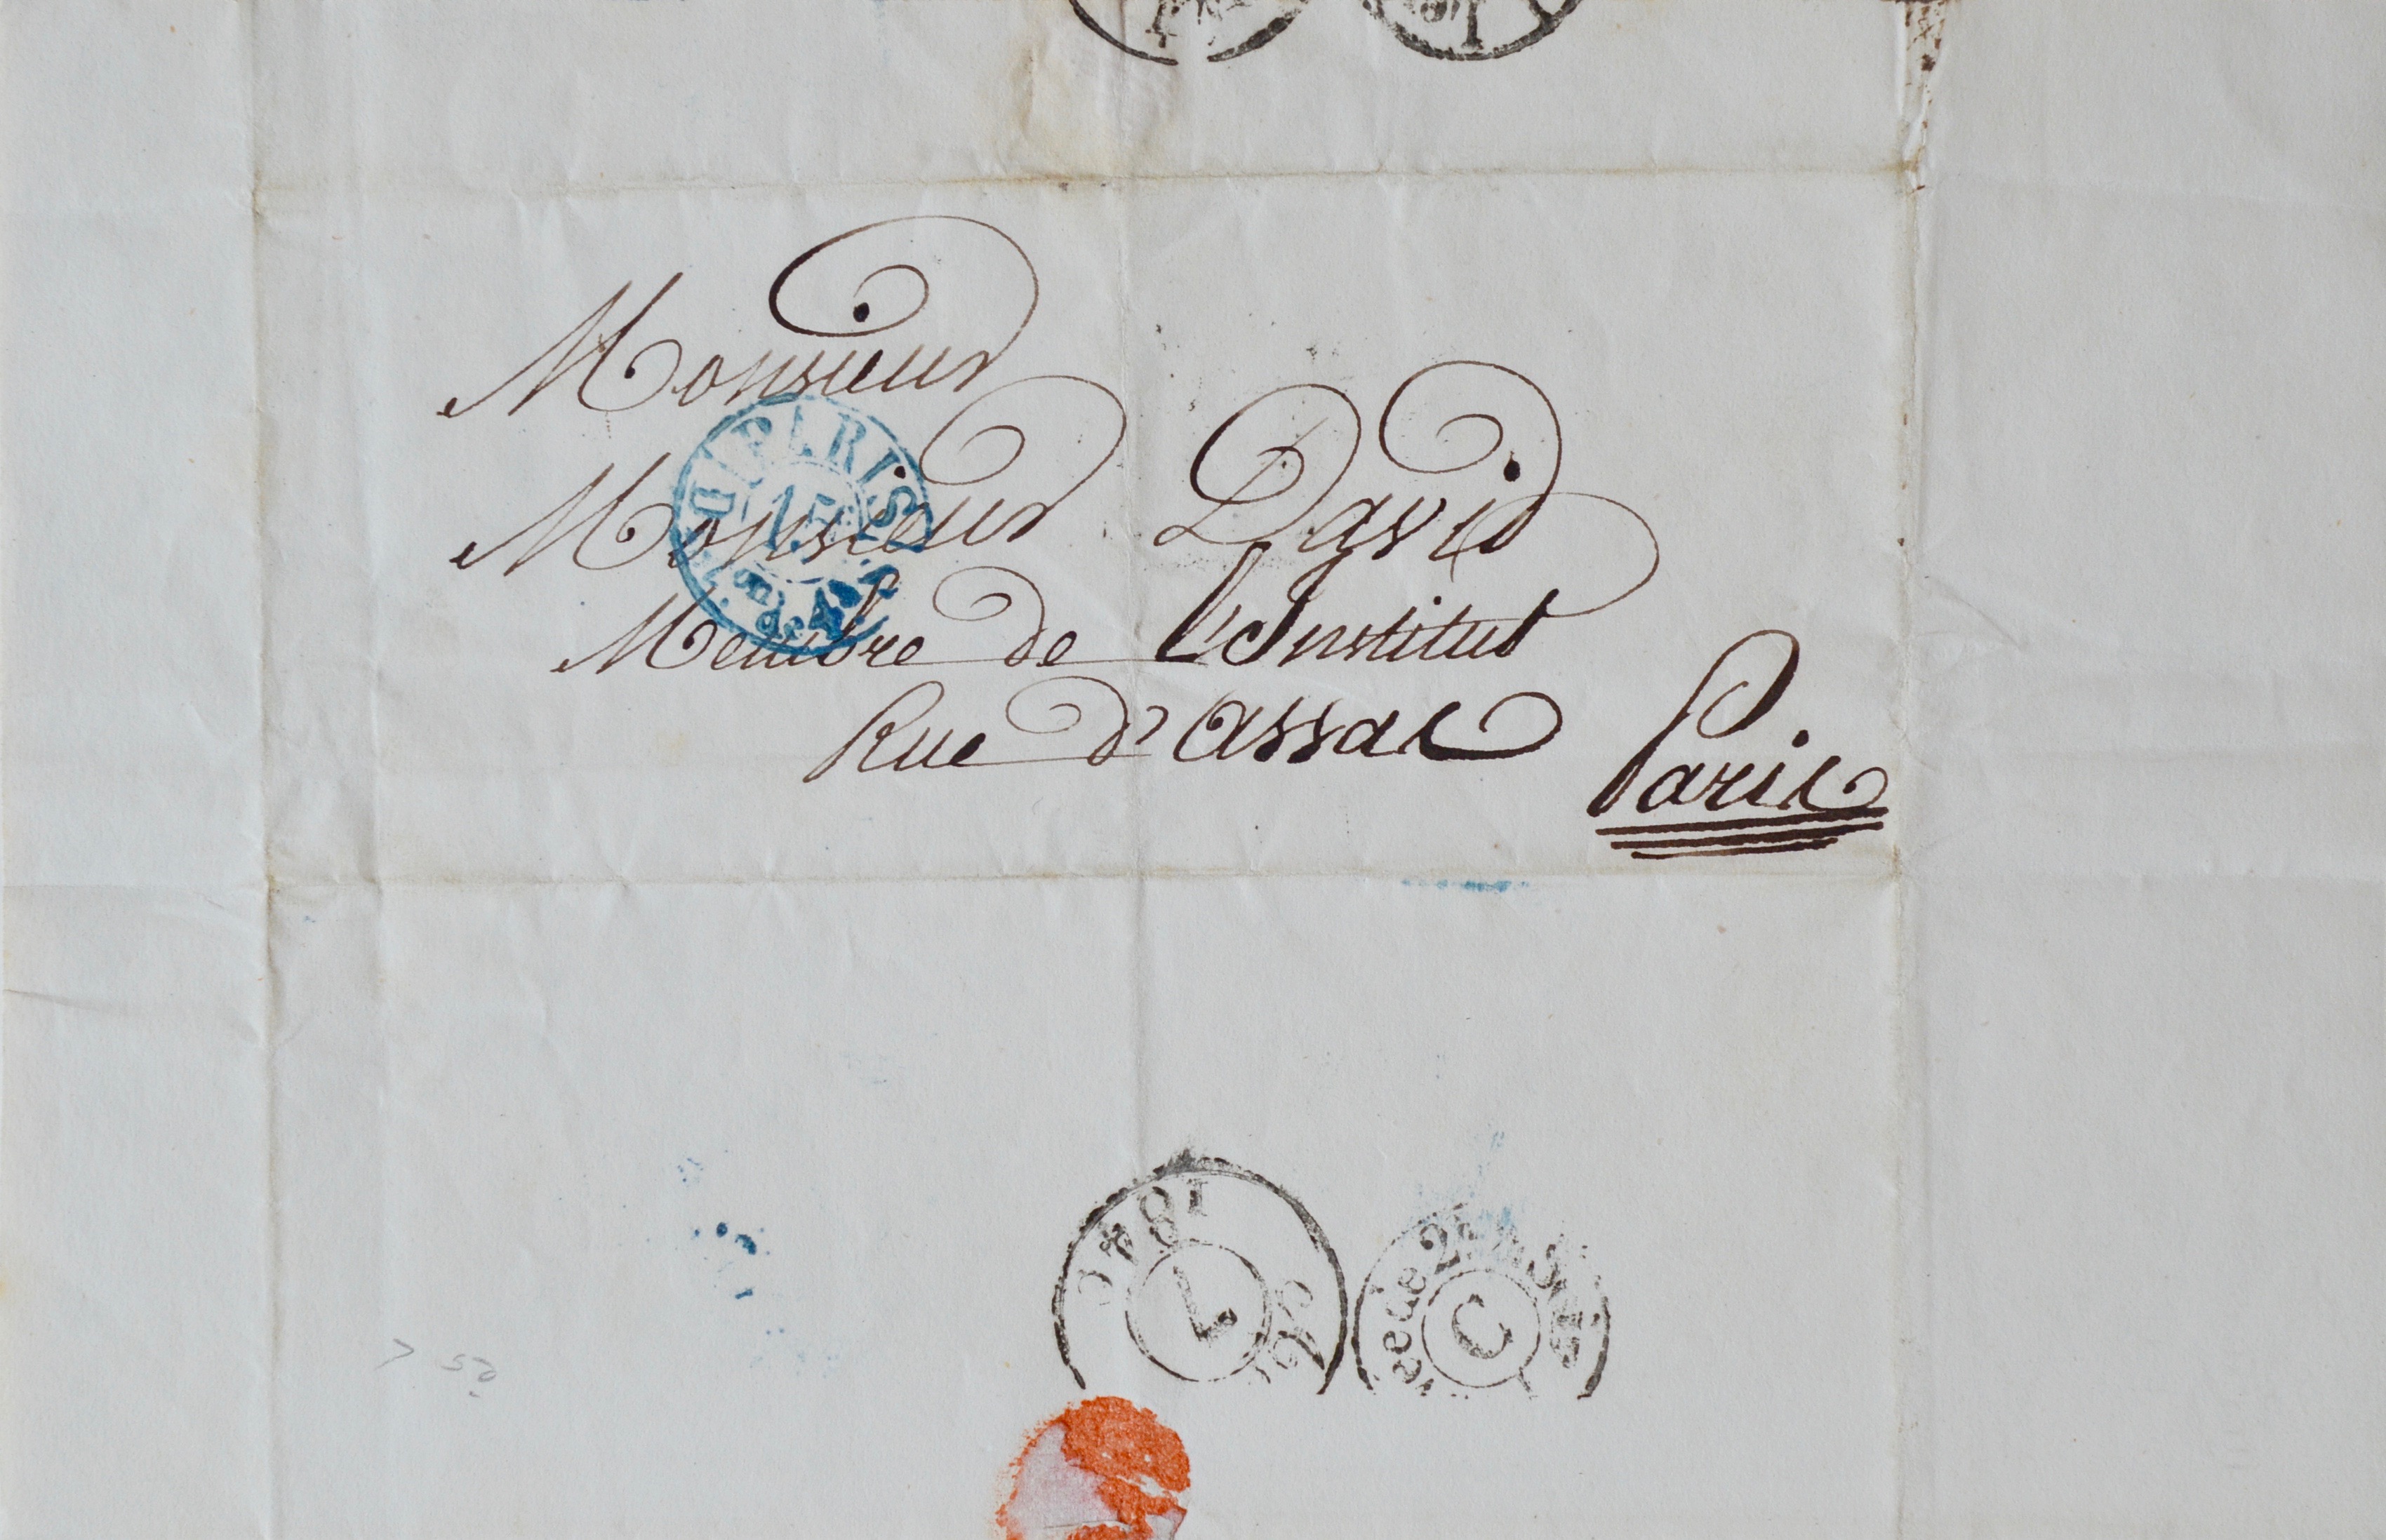 Monsieur
Monsieur David
Membre de L'Institut
Rue d'assas
Paris
PARIS
15
de
1840
L
C